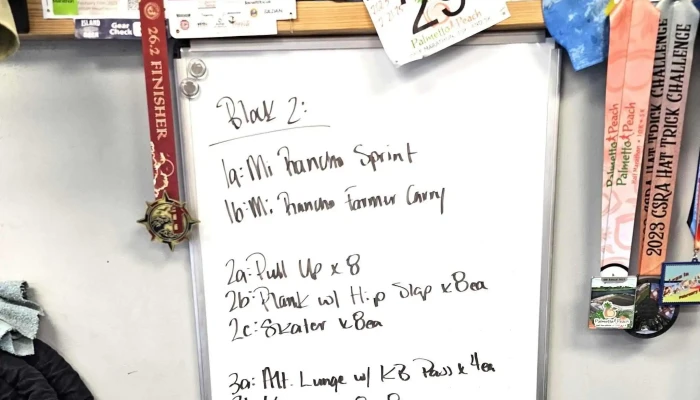 Gear Check
26.2 FINISHER
Palmetto Peach
Block 2:
1a: Mi Rancho Sprint
1b: Mi Rancho Farmer Carry
2a: Pull Up x 8
2b: Plank w/ Hip Slap x 8ea
2c: Skater x 8ea
3a: Alt. Lunge w/ KB Pass x 4ea
Palmetto Peach
Palmetto Peach
2023 CSRA HAT TRICK CHALLENGE
CSRA HAT TRICK CHALLENGE
Palmetto Peach